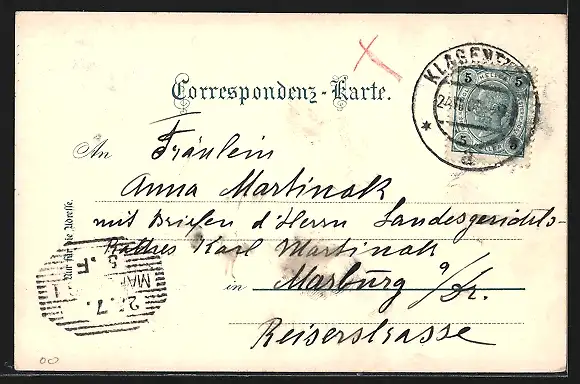 Correspondenz-Karte.
KLAGENF
24
5 5
5 5
a
An Fräulein
Anna Martinak
mit Briefen d'Herrn Landesgerichts-
Rathes Karl Martinak
in Marburg a/Dr.
Reiserstrasse
Nur für die Adresse.
25.7.
MAR
00